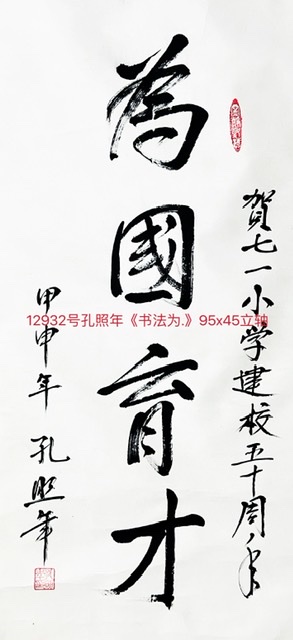 賀七一小学建校五十周年
為國育才
甲申年 孔照年
12932号孔照年《书法为.》95x45立轴